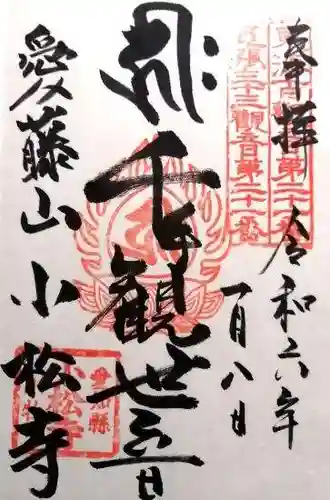 奉拝
令和六年
一月八日
千手観世音
愛藤山小松寺
尾張三十三観音第二十一番
愛知縣
小松寺